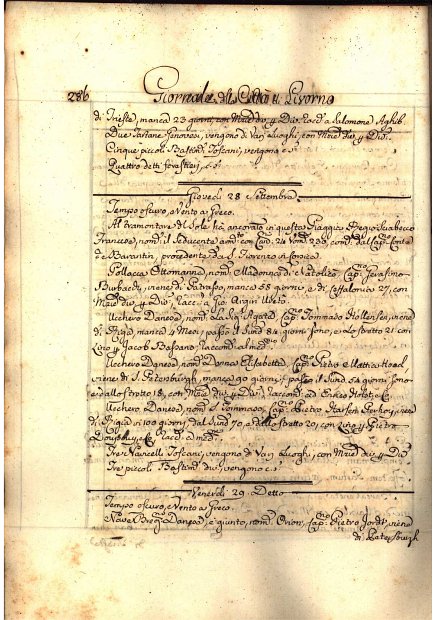 286 Giornale della Città di Livorno
di Trieste, manca 23 giorni, con Mtie div. p. Div. Racc. a Salomone Aghib
Due Tartane Genovesi, vengono di Varj Luoghi, con Mtie div. p. Div.
Cinque piccoli Bastim. Toscani, vengono c. s.
Quattro detti forastieri, c. s.
Giovedì 28 Settembre
Tempo oscuro, Vento a Greco.
Al tramontare del Sole hà ancorato in questa Piaggia Regio Sciabecco
Francese, nom. il Seducente armto con Can. 24 Uom. 230, com. dal Cap. Conte
de Barantin, procedente da S. Fiorenzo in Corsica
Pollacca Ottomanna, nom. Madonna di Natolico, Cap. Jerasimo
viene di Patrasso, manca 58 giorni, e di Ceffalonia 27, con
Mtie div. p. Div. Racc. a Gio.
Ucchero Danese, nom. Agata, Cap. Tommaso viene
di Riga, manca 4 Mesi, passò il Sund 84 giorni sono, e lo stretto 21 con
Lino p. Jacob Bassano, Raccom. al med.
Ucchero Danese, nom. Donna Elisabetta, Cap. Pietro
viene di S. Peterburgh, manca 90 giorni, passò il Sund 54 giorni sono
e dallo stretto 18, con Mtie div. p. Div. Raccom. ad
Ucchero Danese, nom. S. Tommaso, Cap. Pietro viene
di Riga in 100 giorni, dal Sund 70, e dallo stretto 20, con Lino p. Pietro
Racc. a med.
Tre Navicelli Toscani, vengono di Varj Luoghi, con Mtie div. p. Div.
Tre piccoli Bastim. div. vengono c. s.
Venerdì 29 Detto
Tempo oscuro, e Vento a Greco
Nave Danese, è giunto, nom. Orion, Cap. Pietro viene
di Petersburgh